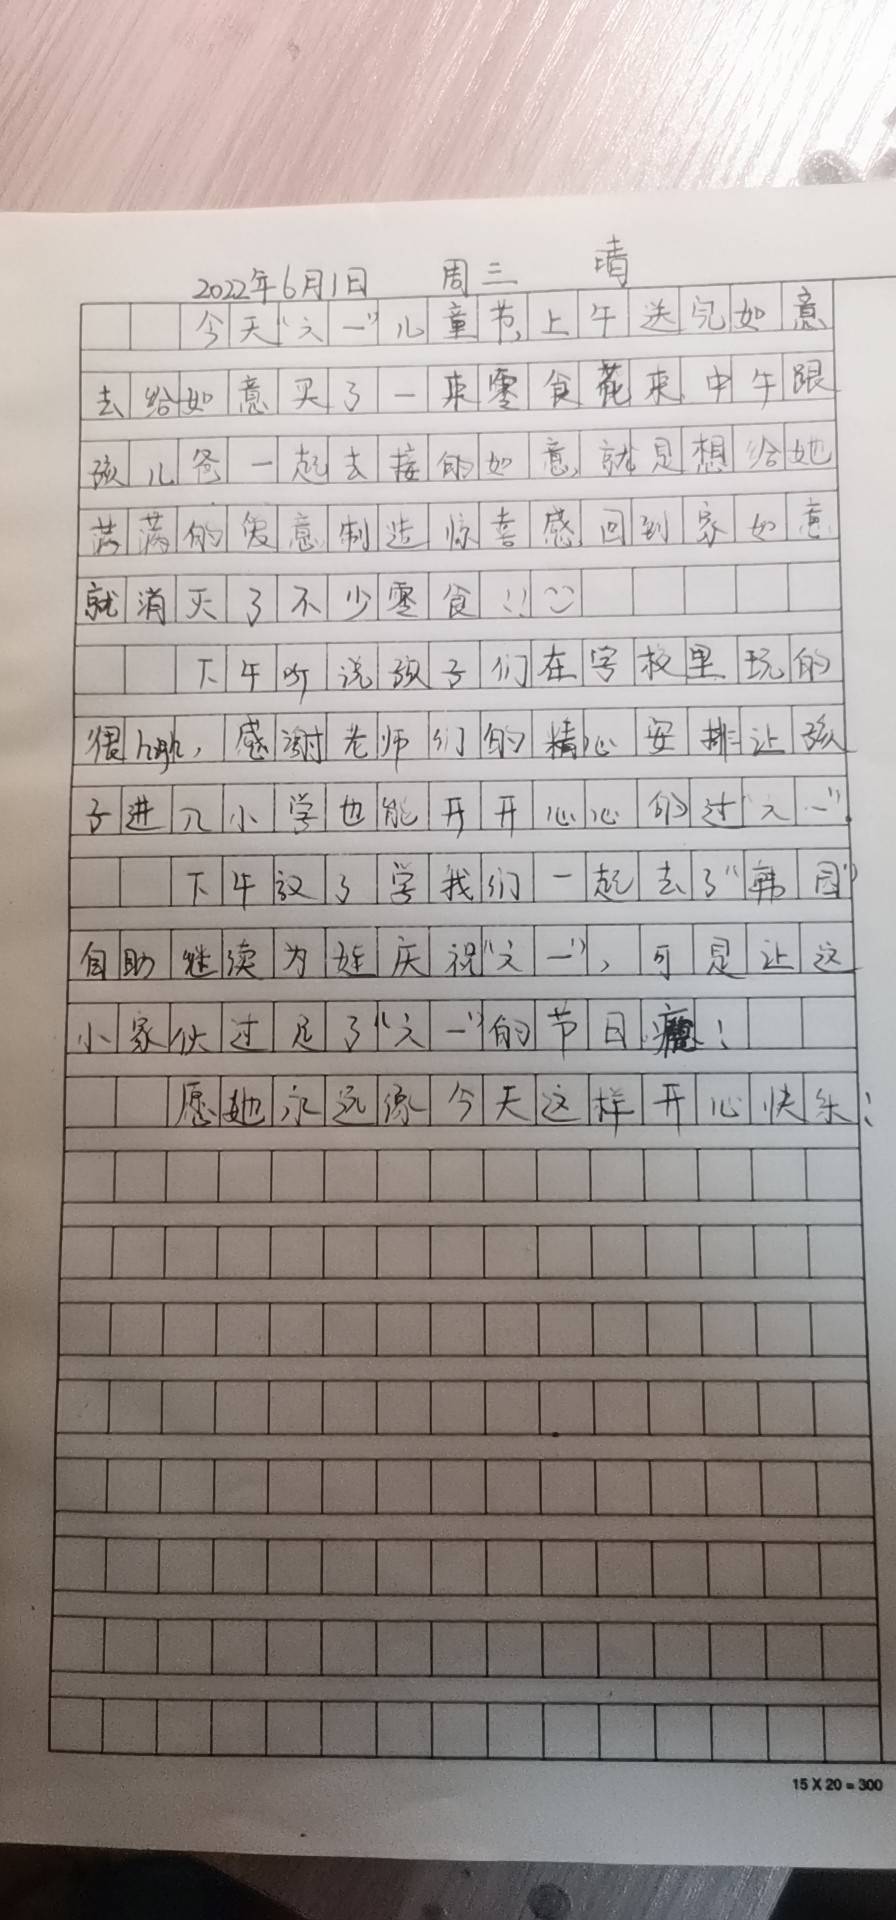 2022年6月1日 周三 晴
今天“六一”儿童节,上午送完如意
去给如意买了一束零食花束,中午跟
孩儿爸一起去接的如意,就是想给她
满满的爱意制造惊喜感,回到家如意
就消灭了不少零食!!
下午听说孩子们在学校里玩的
很high,感谢老师们的精心安排让孩
子进入小学也能开开心心的过“六一”.
下午放了学我们一起去了“韩国”
自助继续为娃庆祝“六一”,可是让这
小家伙过足了“六一”的节日瘾!
愿她永远像今天这样开心快乐!
15 X 20 = 300